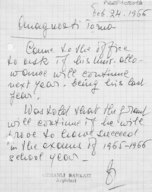 Feb. 24. 1966
Came to the office
to ask if his all-
owance will continue
next year, being his last
year.
Was told that the
will continue if he will
to have succeed
in the exams of 1965-1966
school year.